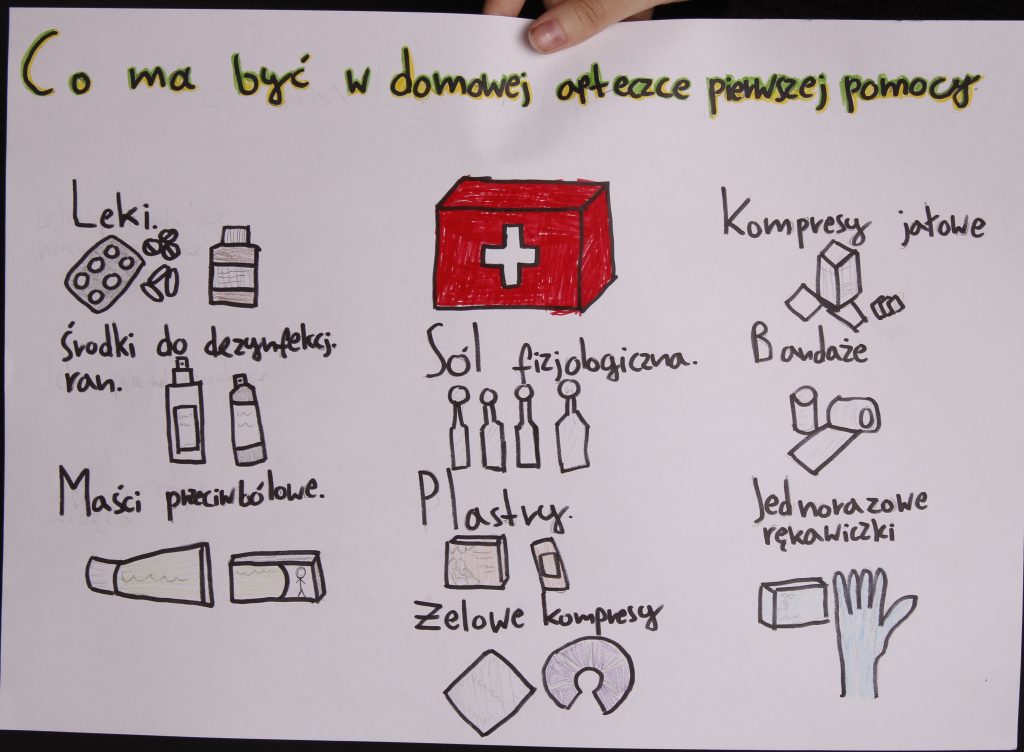 Co ma być w domowej apteczce pierwszej pomocy
Leki.
Środki do dezynfekcj.
ran.
Maści przeciwbólowe.
Sól fizjologiczna.
Plastry.
Żelowe kompresy
Kompresy jałowe
Bandaże
Jednorazowe
rękawiczki